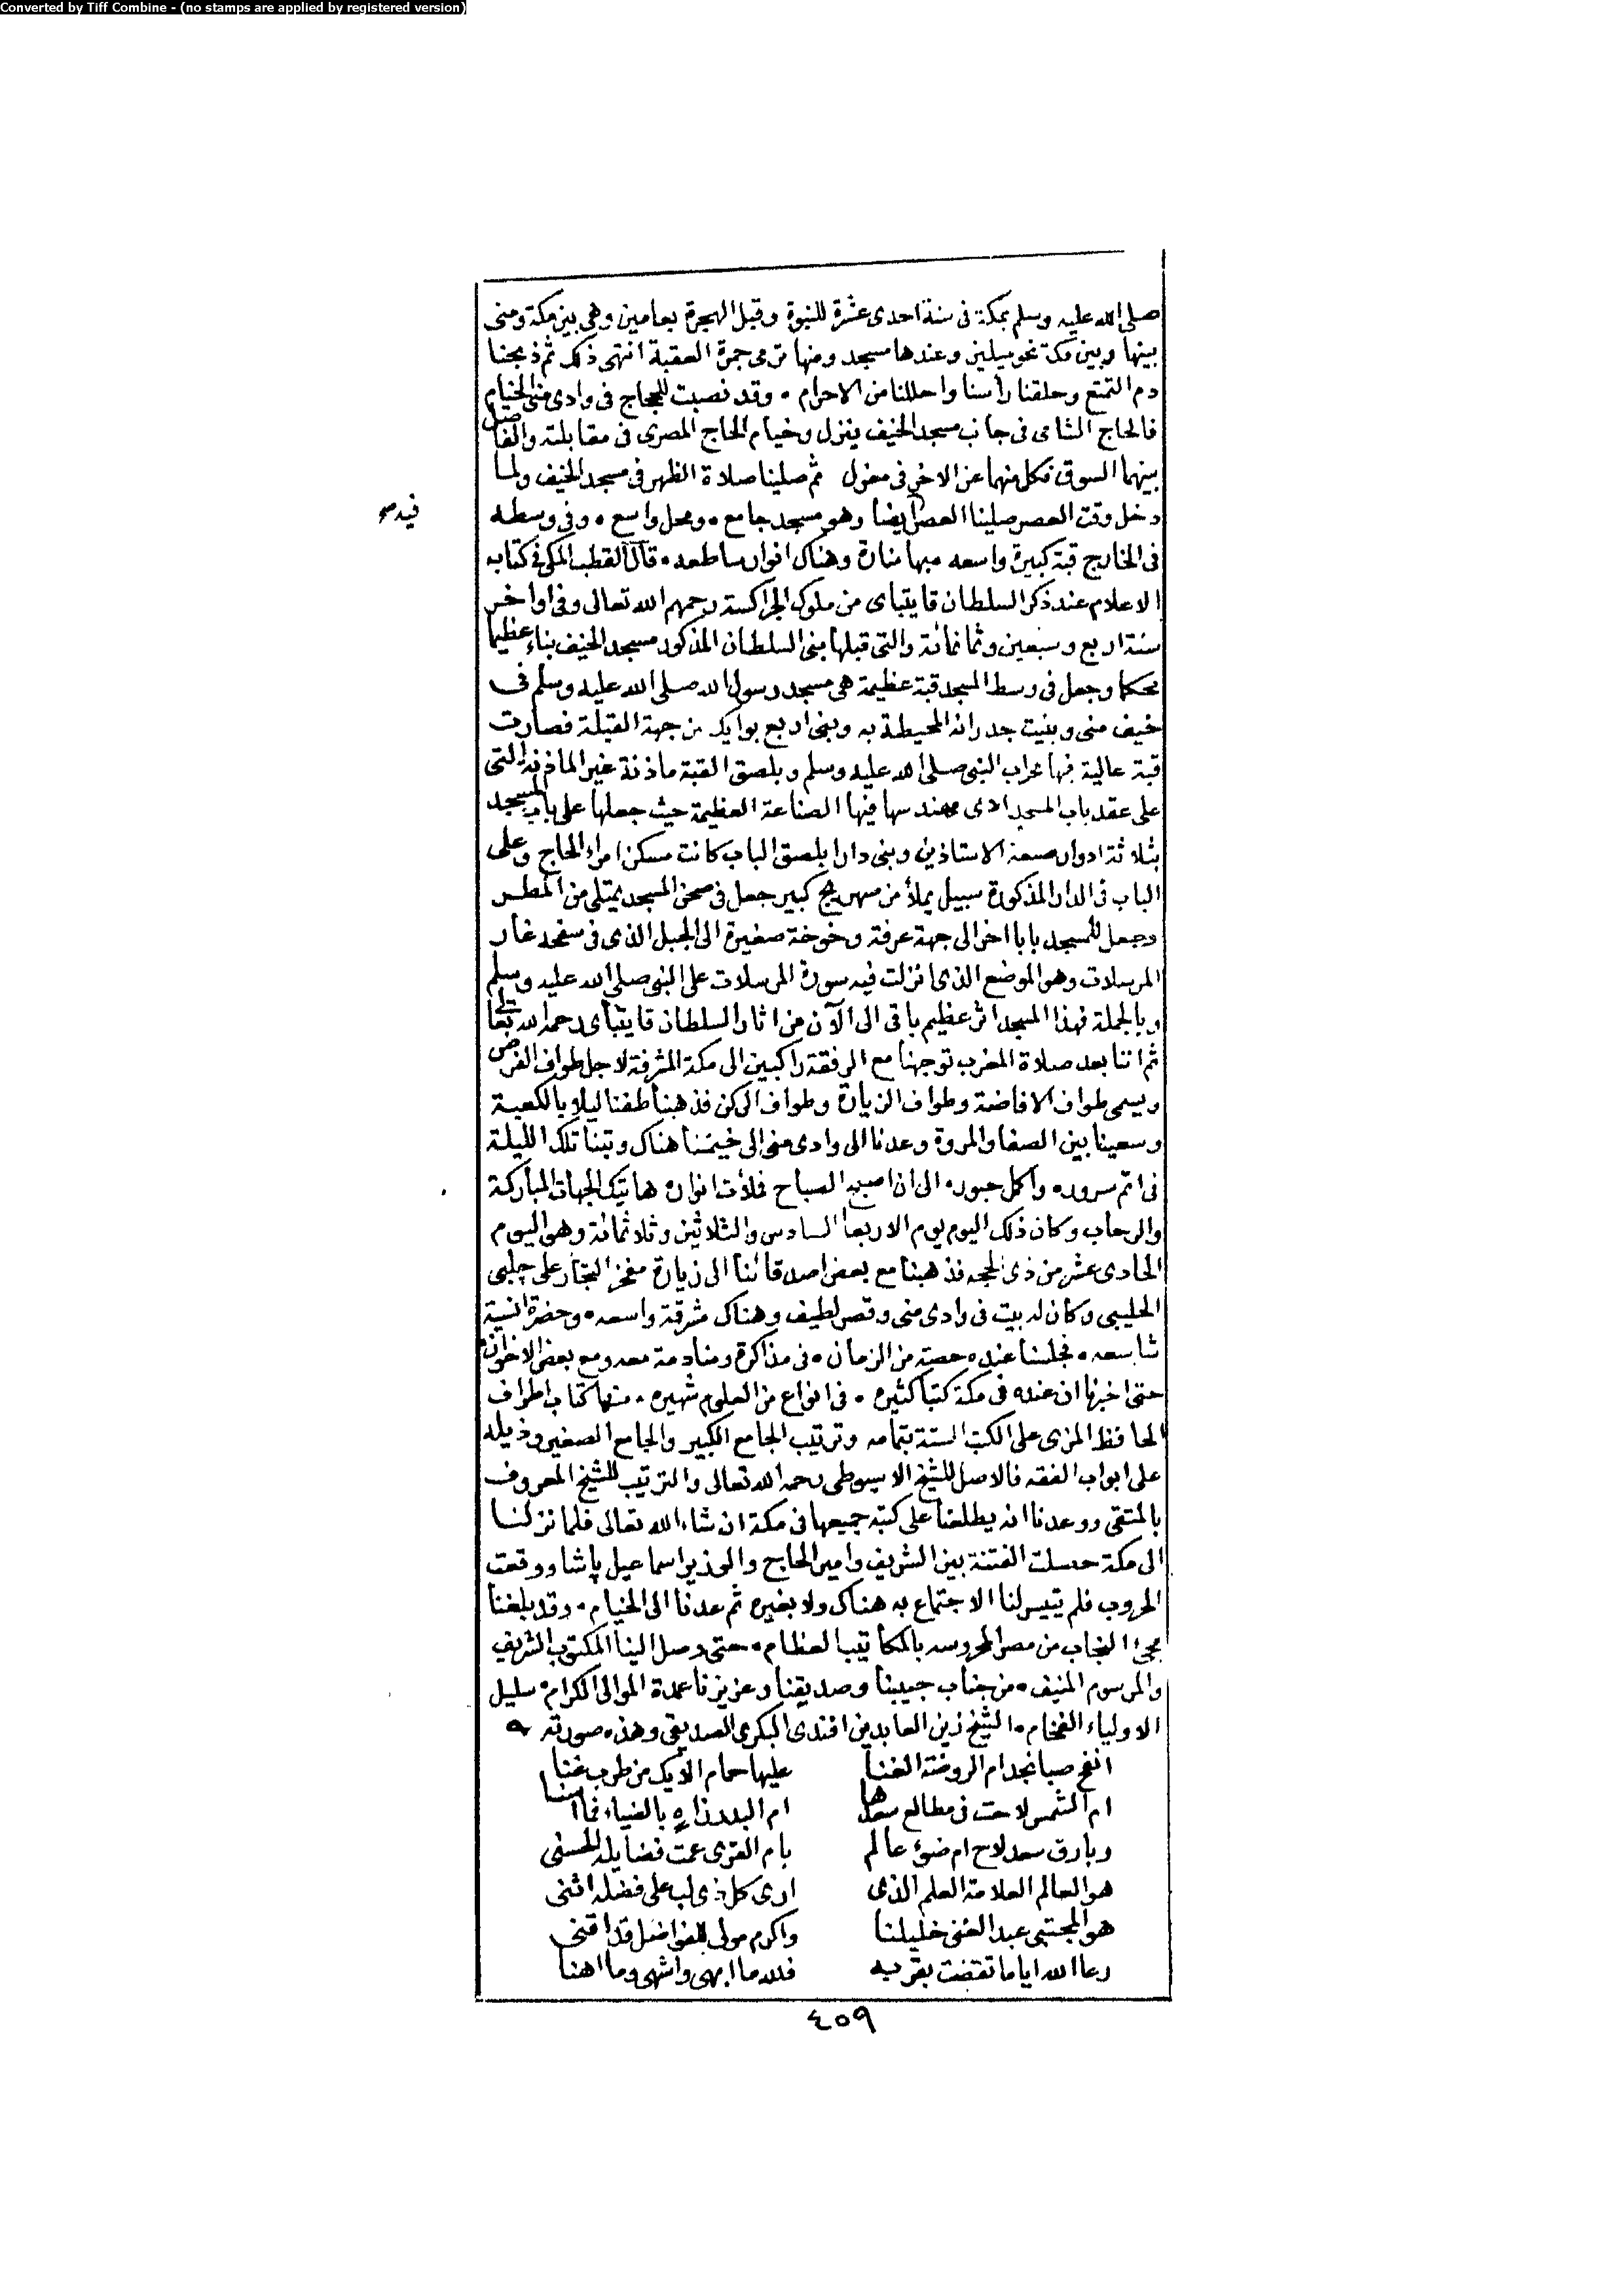 Converted by Tiff Combine - (no stamps are applied by registered version)
صلى الله عليه وسلم بمكة فى سنة احدى عشرة للنبوة وقبل الهجرة بعامين وهى بين مكة ومنى
بينها وبين مكة نحو ميلين وعندها مسجد ومنها ترمى جمرة العقبة انتهى ذلك ثم ذبحنا
دم التمتع وحلقنا رأسنا واحللنا من الاحرام ۰ وقد نصبت للحجاج فى وادى منى الخيام
فالحاج الشامى فى جانب مسجد الخيف ينزل وخيام الحاج المصرى فى مقابلته والفاصل
بينهما السوق فكل منهما عن الاخر فى معزل ثم صلينا صلاة الظهر فى مسجد الخيف ولما
دخل وقت العصر صلينا العصر ايضا وهو مسجد جامع ۰ ومحل واسع ۰ وفى وسطه
فيه صح
فى الخارج قبة كبيرة واسعه مبها منارة وهناك انوار ساطعه ۰ قال القطب المكى فى كتاب
الاعلام عند ذكر السلطان قايتباى من ملوك الجراكسة رحمهم الله تعالى وفى اواخر
سنة اربع وسبعين وثمانمائة والتى قبلها بنى السلطان المذكور مسجد الخيف بناء عظيما
محكما وجعل فى وسط المسجد قبة عظيمة هى مسجد رسول الله صلى الله عليه وسلم فى
خيف منى وبنيت جدرانه المحيطة به وبنى اربع بوايك من جهة القبلة فصارت
قبة عالية فيها محراب النبى صلى الله عليه وسلم وبلصق القبة ماذنة غير الماذنه التى
على عقد باب المسجد ادى مهندسها فيها الصناعة العظيمة حيث جعلها على باب المسجد
بثلاثة ادوار صنعة الاستاذين وبنى دارا بلصق الباب كانت مسكن امراء الحاج وعلى
الباب فى الدار المذكورة سبيل يملأ من صهريج كبير جعل فى صحن المسجد يمتلى من المطر
وجعل للمسجد بابا اخر الى جهة عرفة وخوخة صغيرة الى الجبل الذى فى سفحه غار
المرسلات وهو الموضع الذى نزلت فيه سورة المرسلات على النبى صلى الله عليه وسلم
وبالجملة فهذا المسجد اثر عظيم باقى الى الآن من اثار السلطان قايتباى رحمه الله تعالى
ثم اننا بعد صلاة المغرب توجهنا مع الرفقة راكبين الى مكة المشرفة لاجل طواف الفرض
ويسمى طواف الافاضة وطواف الزيارة وطواف الركن فذهبنا طفنا ليلا بالكعبة
وسعينا بين الصفا والمروة وعدنا الى وادى منى الى خيمنا هناك وبتنا تلك الليلة
فى اتم سرور ۰ واكمل حبور ۰ الى ان اصبح الصباح فلأت انواره هاتيك الجهات المباركة
والرحاب وكان ذلك اليوم يوم الاربعا السادس والثلاثين وثلاثمائة وهو اليوم
الحادى عشر من ذى الحجه فذهبنا مع بعض اصدقائنا الى زيارة مفخر التجار على چلبى
الحليبى وكان له بيت فى وادى منى وقصر لطيف وهناك مشرقة واسعه ۰ وحضرة انسية
شاسعه ۰ فجلسنا عنده حصة من الزمان ۰ فى مذاكرة ومنادمة معه ومع بعض الاخوان
حتى اخبرنا ان عنده فى مكة كتبا كثيره ۰ فى انواع من العلوم شهيره ۰ منها كتاب اطراف
الحافظ المزى على الكتب الستة بتمامه وترتيب الجامع الكبير والجامع الصغير وذيله
على ابواب الفقه فالاصل للشيخ الاسيوطى رحمه الله تعالى والترتيب للشيخ المعروف
بالمتقى ووعدنا انه يطلعنا على كتبه جميعها فى مكة ان شاء الله تعالى فلما نزلنا
الى مكة حصلت الفتنة بين الشريف وامير الحاج والوزير اسماعيل پاشا ووقعت
الحروب فلم تيسر لنا الاجتماع به هناك ولا بغيره ثم عدنا الى الخيام ۰ وقد بلغنا
مجئ النجاب من مصر المحروسه بالمكاتيب العظام ۰ حتى وصل الينا المكتوب الشريف
والمرسوم المنيف ۰ من جناب حبيبنا وصديقنا وعزيزنا عمدة الموالى الكرام ۰ سليل
الاولياء الفخام ۰ الشيخ زين العابدين افندى البكرى الصديقى وهذه صورته
انفح صبا نجد ام الروضة الغنا عليها حمام الايك من طرب غنا
ام الشمس لاحت فى مطالع سعدها ام البدر زاه بالضياء فما اسنا
وبارق سعد لاح ام ضوئ عالم بام القرى عمت فضايله الحسنى
هو العالم العلامة العلم الذى ارى كل ذى لب على فضله اثنى
هو المجتبى عبد الغنى خليلنا واكرم مولى للفواضل قد اقنى
رعا الله اياما تقضت بقربه فلله ما ابهى واشهى وما اهنا
٤٥٩